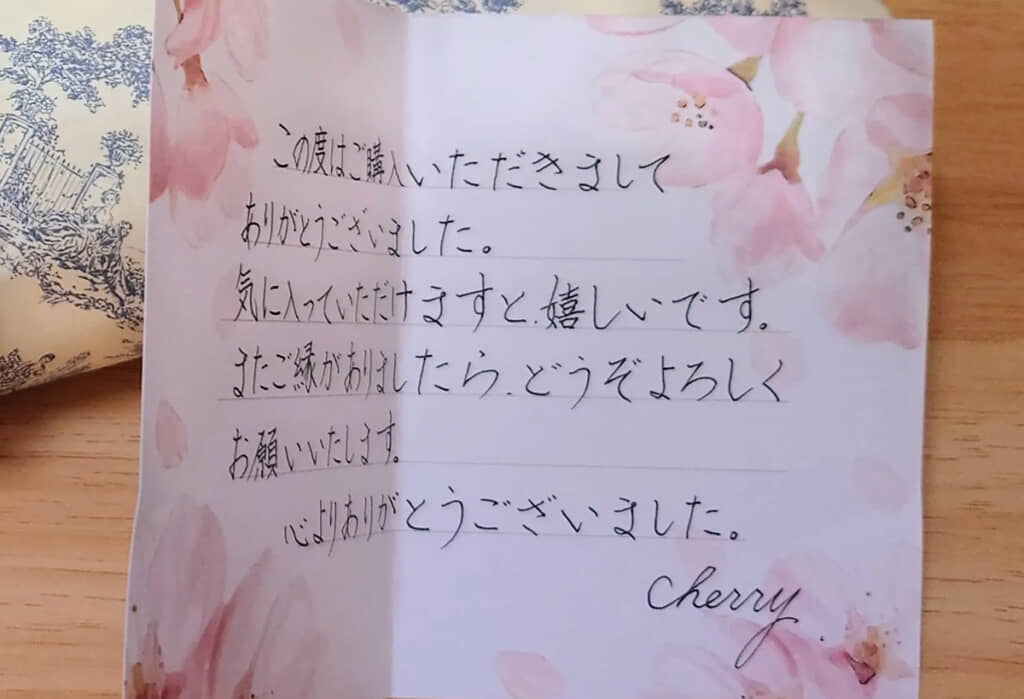 この度はご購入いただきまして
ありがとうございました。
気に入っていただけますと、嬉しいです。
またご縁がありましたら、どうぞよろしく
お願いいたします。
心よりありがとうございました。
cherry.